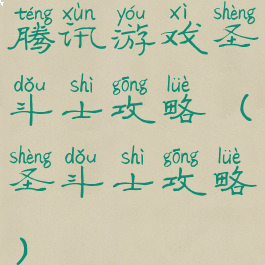 téng xùn yóu xì shèng
腾讯游戏圣
dǒu shì gōng lüè
斗士攻略(
shèng dǒu shì gōng lüè
圣斗士攻略
)